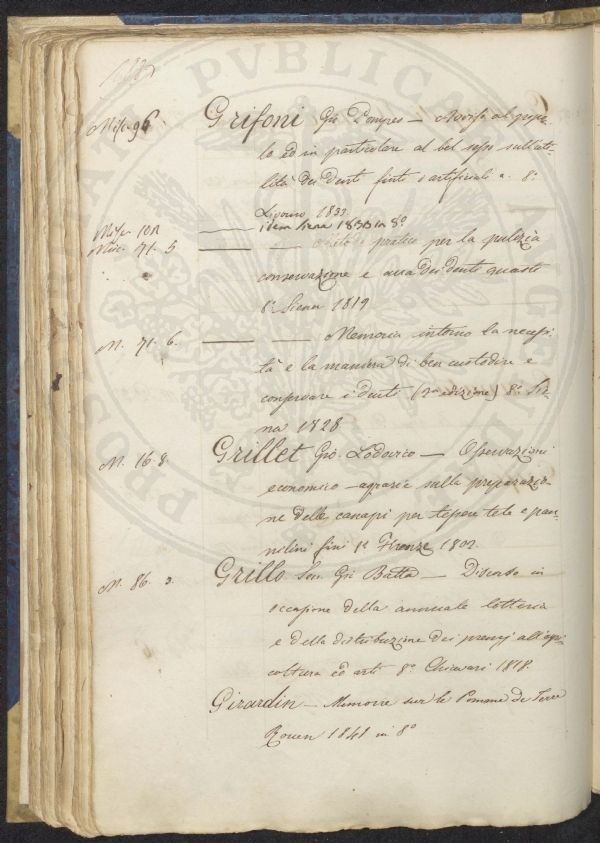 Misc. 96. Grifoni Gio Pompeo — Avviso al popo-
lo ed in particolare al bel sesso sull'uti-
lità dei denti finti e artificiali 8.°
Livorno 1833.
Misc. 101 — idem Siena 1833 in 8.°
Misc. 71. 5 — — pratico per la pulizia
conservazione e cura dei denti guasti
8.° Siena 1819
M. 71. 6. — — Memoria intorno la necessi-
tà e la maniera di ben custodire e
conservare i denti (2.a edizione) 8.° Sie-
na 1828
M. 16. 8. Grillet Gio. Lodovico — Osservazioni
economico-agrarie sulla preparazio-
ne delle canapi per tessere tele e pan-
nilini fini Firenze 1802.
M. 86. 3. Grillo Gio Batta — Discorso in
occasione della annuale lotteria
e della distribuzione dei premj all'agri-
coltura ed arti 8.° Chiavari 1818.
Girardin — Memoire sur le Pomme de Terre
Rouen 1841 in 8.°
PVBLICA